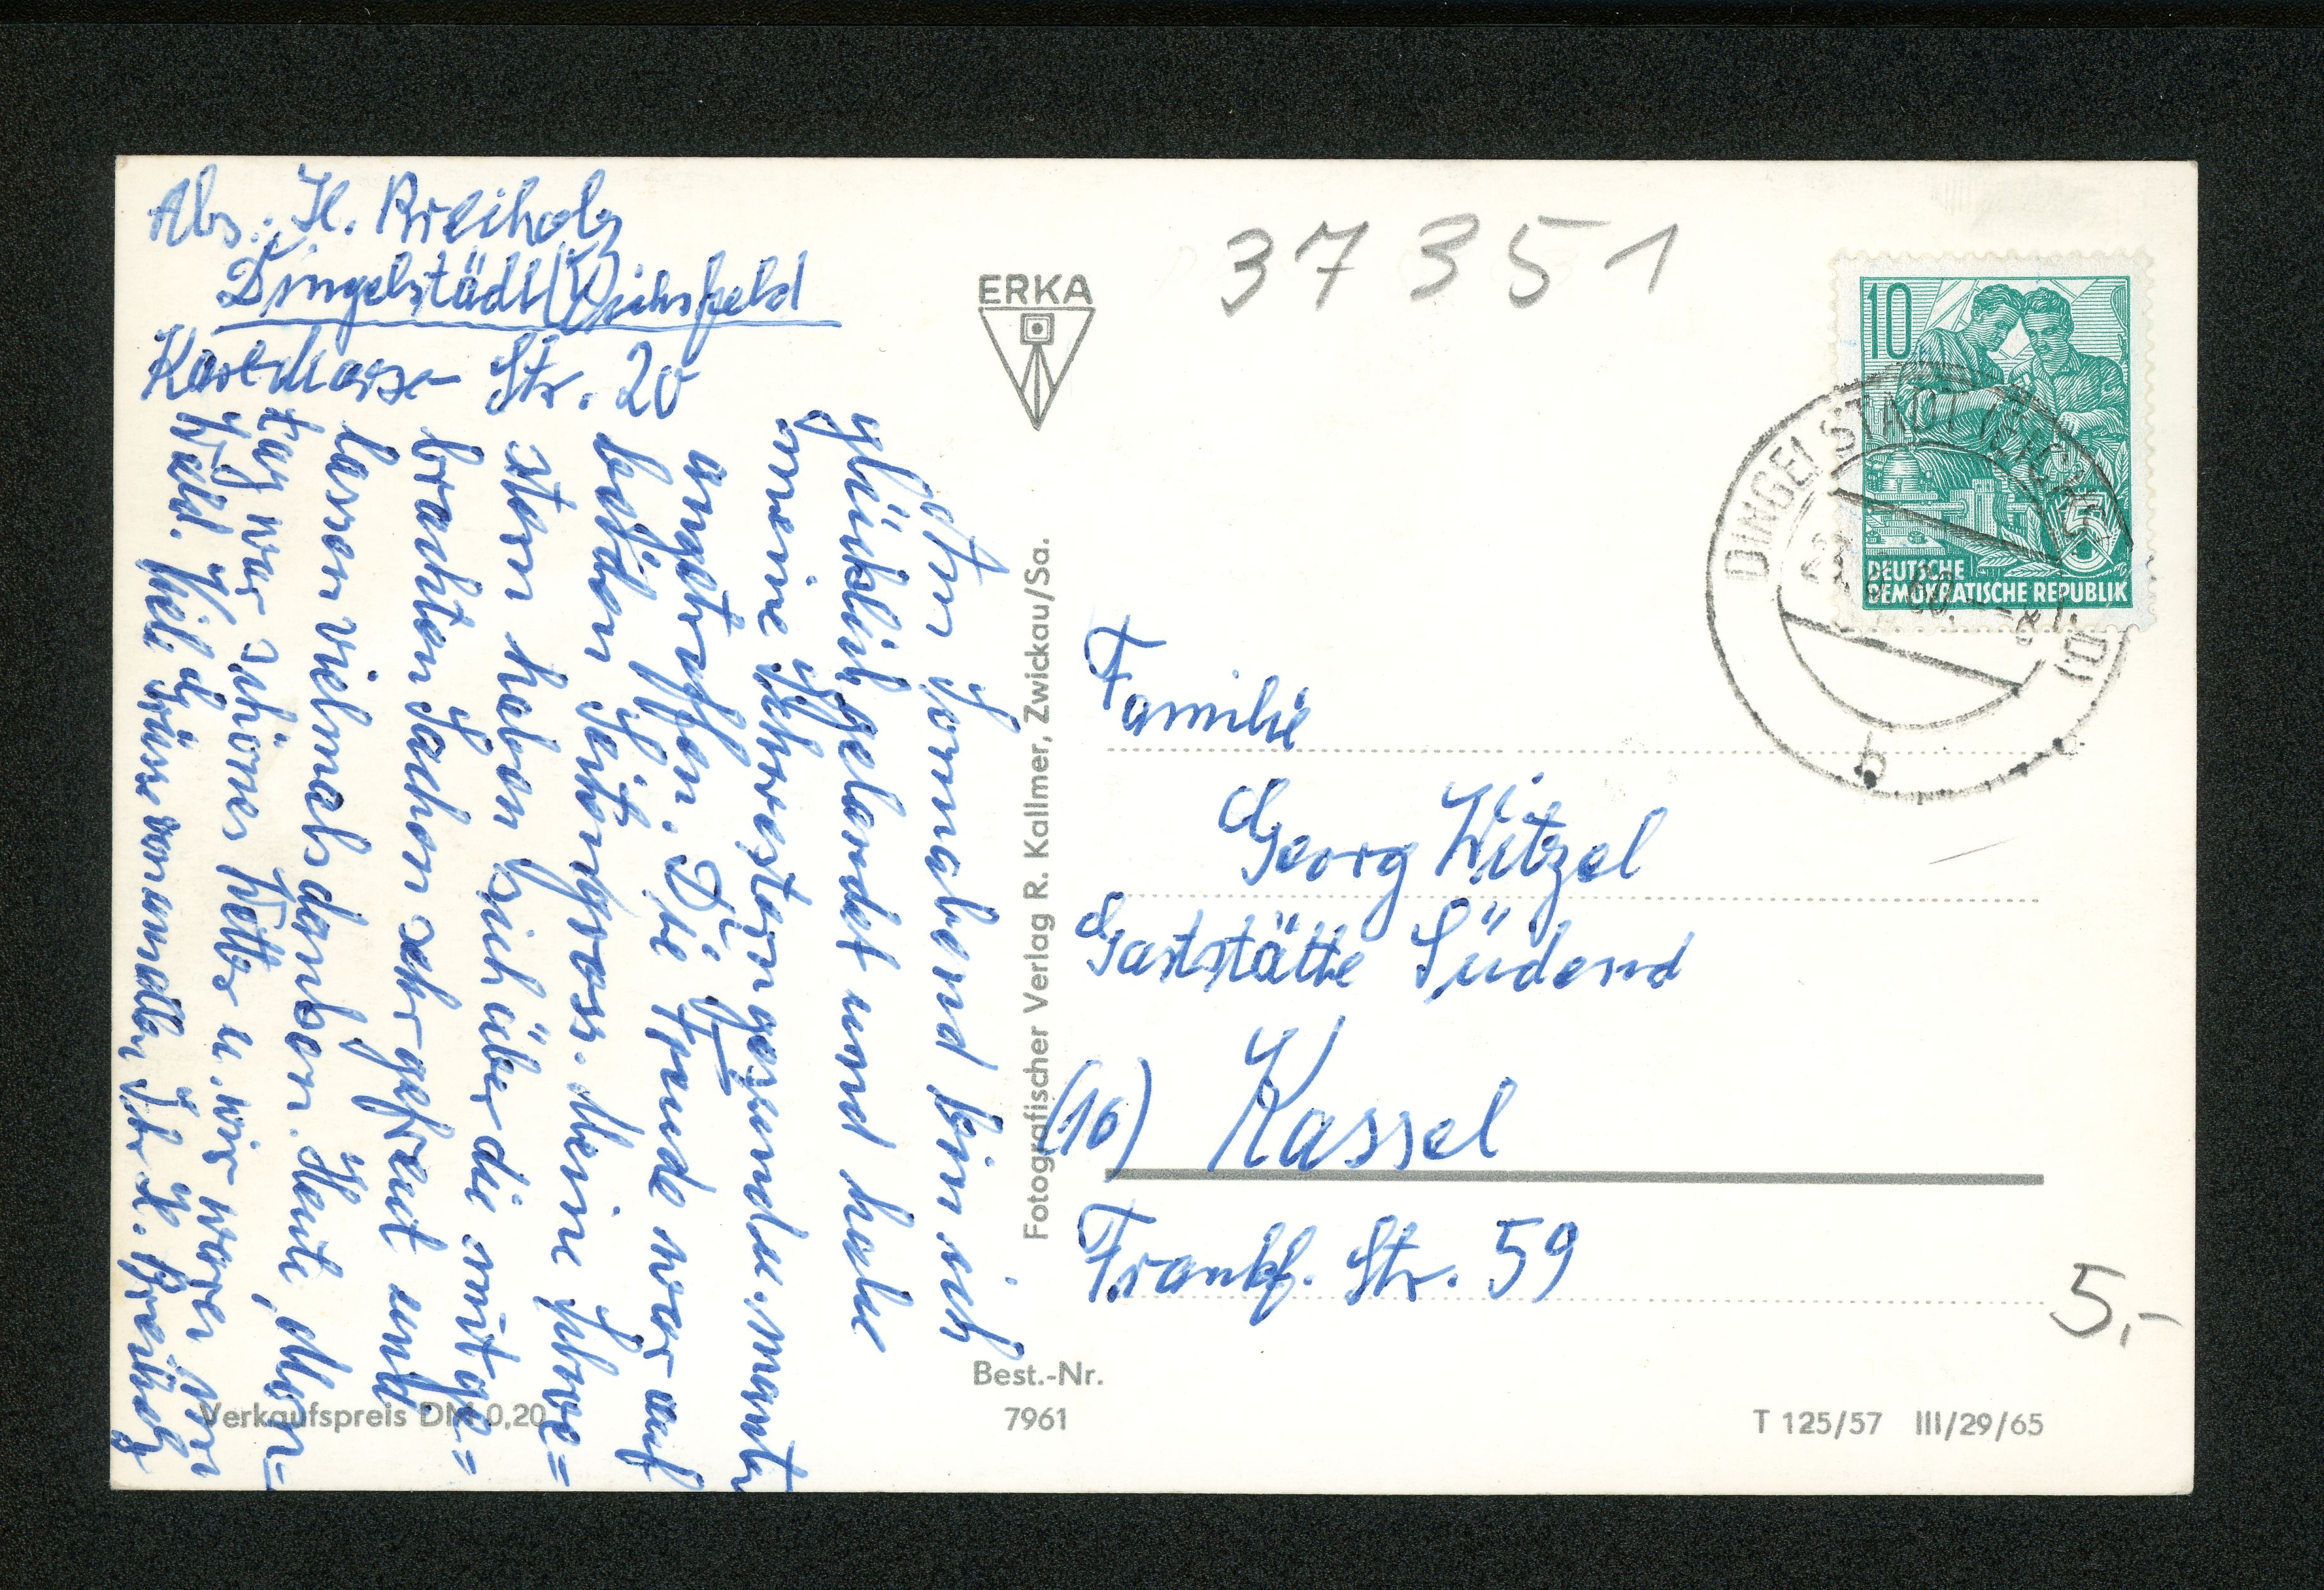 Abs.: H. Breiholz
Dingelstädt(Eichsfeld
Karl-Marx-Str. 20
Am Sonnabend bin ich
glücklich gelandet und habe
meine Schwestern gesund u. munter
angetroffen. Die Freude war auf
beiden Seiten gross. Meine
stern haben sich über die mitge=
brachten Sachen sehr gefreut und
lassen vielmals danken. Heute, Mon=
tag war schönes Wetter u. wir waren im
Wald. Viele Grüsse von Ihr H. Breiholz
ERKA
Fotografischer Verlag R. Kallmer, Zwickau/Sa.
Verkaufspreis DM 0,20
Best.-Nr.
7961
37351
10
5
DEUTSCHE
DEMOKRATISCHE REPUBLIK
DINGELSTÄDT
b
Familie
Georg Witzel
Gaststätte Südend
(16) Kassel
Frankf. Str. 59
5,-
T 125/57 III/29/65